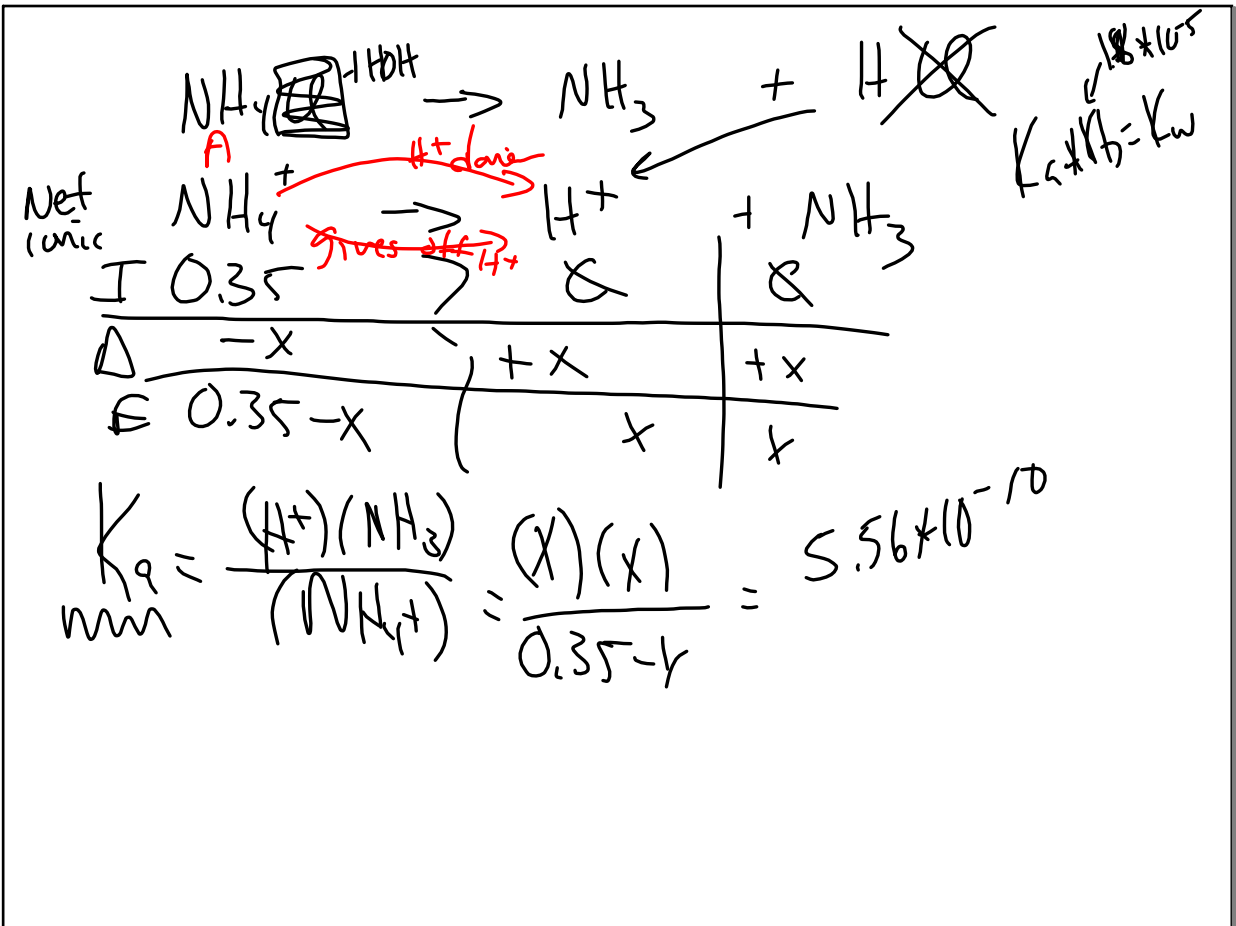 NH4Cl + HOH → NH3 + HCl
1.8*10^-5
Ka*Kb=Kw
A
H+ donor
Net ionic NH4+ → H+ + NH3
gives off H+
I 0.35 0 0
Δ -x +x +x
E 0.35-x x x
Ka = (H+)(NH3)/(NH4+) = (x)(x)/0.35-x = 5.56*10^-10